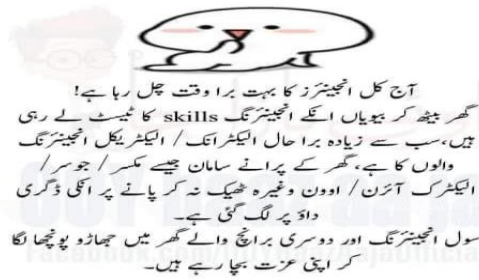 آج کل انجینئرز کا بہت برا وقت چل رہا ہے!
گھر بیٹھ کر بیویاں انکے انجینئرنگ skills کا ٹیسٹ لے رہی
ہیں، سب سے زیادہ برا حال الیکٹرانک / الیکٹریکل انجینئرنگ
والوں کا ہے، گھر کے پرانے سامان جیسے مکسر / جوسر /
الیکٹرک آئرن / اوون وغیرہ ٹھیک نہ کر پانے پر انکی ڈگری
داؤ پر لگ گئی ہے۔
سول انجینئرنگ اور دوسری برانچ والے گھر میں جھاڑو پونچھا لگا
کر اپنی عزت بچا رہے ہیں۔